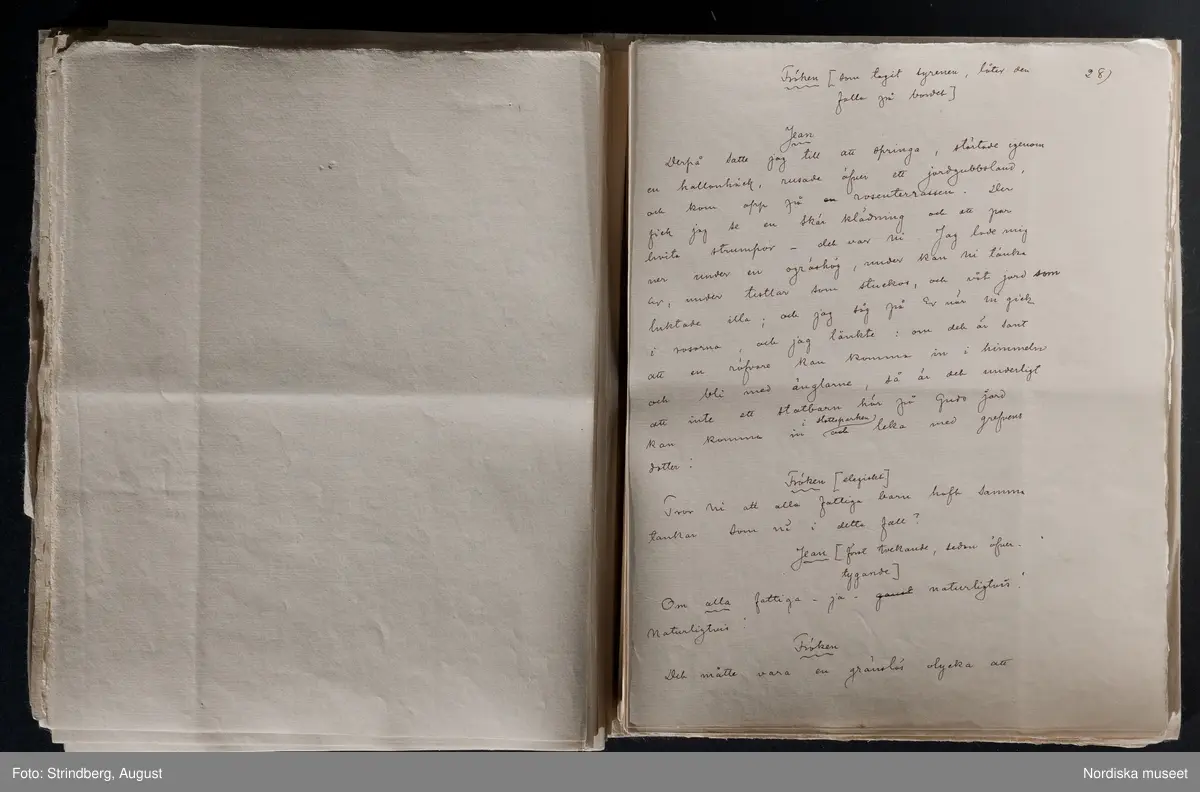 28)
Fröken [som tagit syrenen, låter den
falla på bordet]
Jean
Derpå satte jag till att springa, störtade igenom
en hallonhäck, rusade öfver ett jordgubbsland,
och kom opp på en rosenterrassen. Der
fick jag se en skär klädning och ett par
hvita strumpor – det var Ni. Jag lade mig
ner under en ogräshög, under kan Ni tänka
Er, under tistlar som stuckos, och våt jord som
luktade illa; och jag såg på Er när Ni gick
i rosorna, och jag tänkte: om det är sant
att en röfvare kan komma in i himmeln
och bli med änglarne, så är det underligt
att inte ett statbarn här på Guds jord
kan komma in i slottsparken och leka med grefvens
dotter!
Fröken [elegiskt]
Tror Ni att alla fattiga barn haft samma
tankar som Ni i detta fall?
Jean [först tvekande, sedan öfver-
tygande]
Om alla fattiga – ja – ganst naturligtvis!
Naturligtvis!
Fröken
Det måtte vara en gränslös olycka att
Foto: Strindberg, August
Nordiska museet